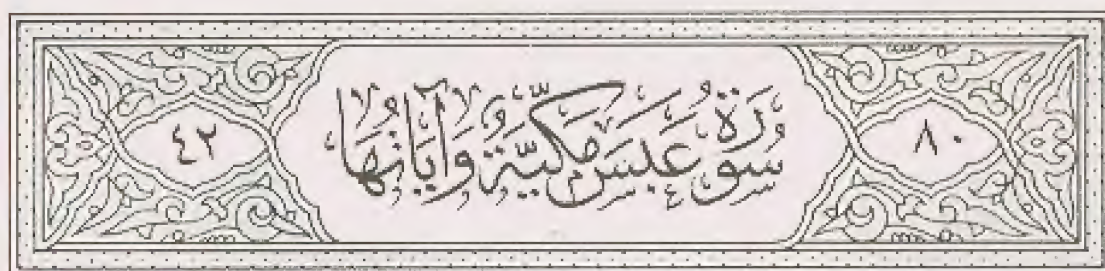 ٨٠
سُورَةُ عَبَسَ مَكِّيَّةٌ وَآيَاتُهَا
٤٢